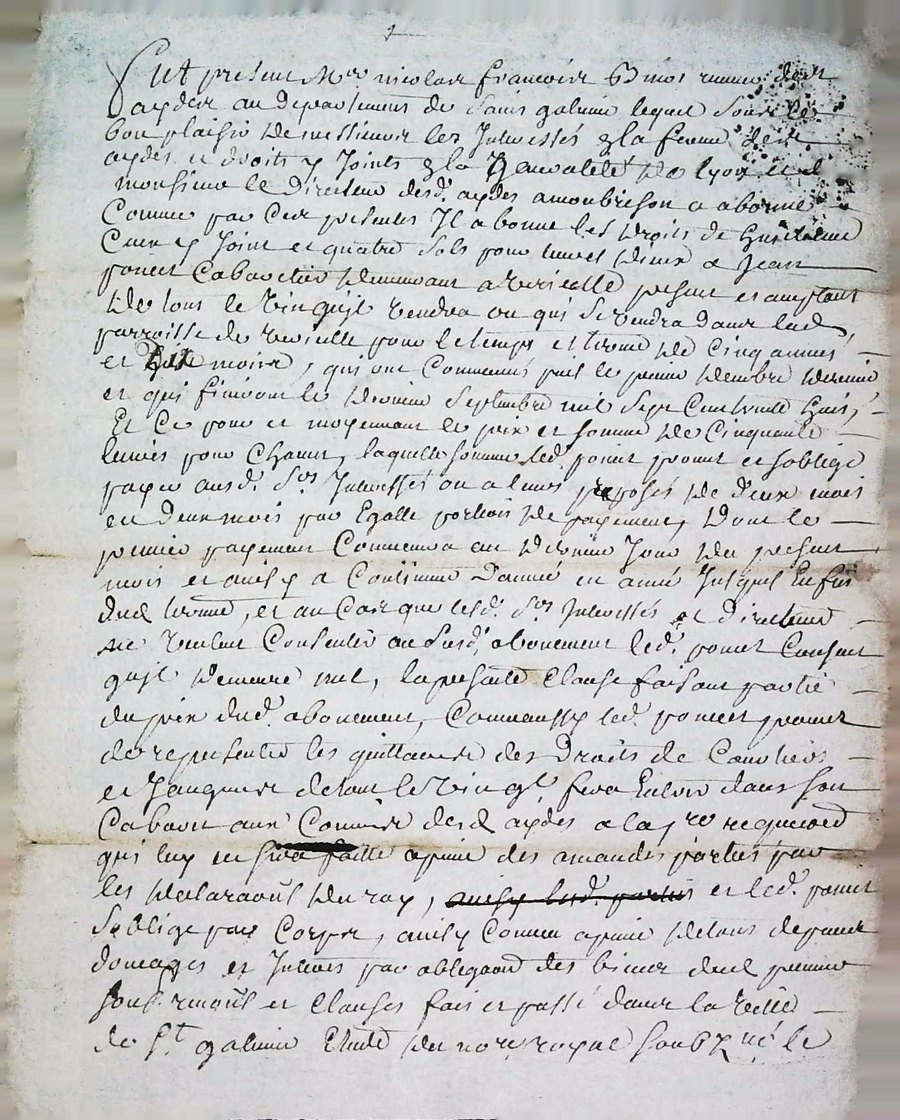 Fut present Mre nicolas francois Bmos receveur des
aydes au departement de Saint galmier lequel sous le
bon plaisir de messieurs les Interessés a la ferme des
aydes et droits y Joints a la Generalité de lyon et de
monsieur le Directeur desd. aydes a montbrison a abonné
Comme par Ces presentes Il abonne les droits de
Cinq y Joint et quatre sols pour livres d'iceux a Jean
poncet Cabaretier demeurant a present et acceptant
de tous le vin qu'il vendra ou qui se vendra dans lad.
parroisse de pour le temps et terme de Cinq années
et huit mois, qui ont Commencés par le premier dernier
et qui finiront le dernier Septembre mil Sept Cent trente huit,
Et Ce pour et moyennant le prix et somme de Cinquante
livres pour Chacun, laquelle somme led. poncet promet et soblige
payer ausd. Srs Interessés ou a leurs preposés de deux mois
en deux mois par Egalle portions de payement, dont le
premier payement Commencera au dernier Jour du present
mois et ainsy a Continuer d'année en année Jusques En fin
dud. terme, et au Cas que lesd. Srs Interessés et directeur
ne veulent Consentir au susd. abonement led. poncet Consent
qu'il demeure nul, la presente Clause faisant partie
du prix dud. abonement, Comme aussy led. poncet promet
de representer les quittances des Droits de Courtiers
et Jaugeurs de tout le vin qu'il fera Entrer dans son
Cabaret aux Commis desd. aydes a la 1re requisition
qui luy en sera faitte a peine des amandes portées par
les declaraons du roy, ainsy lesd. parties et led. poncet
soblige par Corps, ainsy Comme a peine de tous depens
domages et Interets par obligaon des biens dud. premier
soubs renonons et Clauses fait et passé dans la ville
de St galmier Etude du nore royal soubzné le